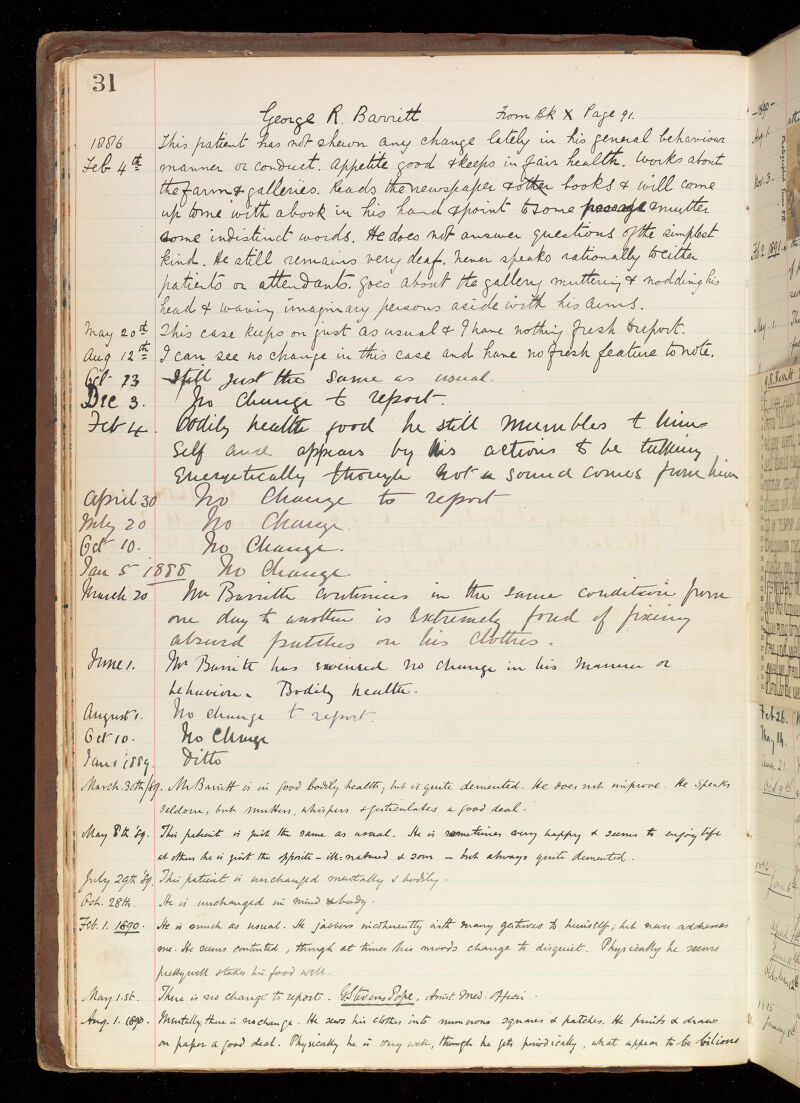 31
George R. Barritt From Bk X Page 91.
1886 This patient has not shewn any change lately in his general behaviour
Feb 4th manner or conduct. Appetite good & keeps in fair health. Works about
the farm & galleries. Reads the newspaper & other books & will come
up to me with a book in his hand & point to some passage mutter
some indistinct words. He does not answer questions of the simplest
kind. He still remains very deaf. never speaks rationally to either
patients or attendants. goes about the gallery muttering & nodding his
head & waving imaginary persons aside with his arms.
May 20th This case keeps on just as usual & I have nothing fresh to report.
Aug 12th I can see no change in this case and have no fresh feature to note.
Oct 23 Still just the same as usual.
Dec 3. No change to report.
Feb 4. Bodily health good he still mumbles to him
self and appears by his actions to be talking
energetically though not a sound comes from him
April 30 No Change to report
July 20 No Change.
Oct 10. No Change.
Jan 5 1888 No Change.
March 20 Mr Barritt continues in the same condition from
one day to another is extremely fond of fixing
absurd patches on his clothes.
June 1. Mr Barritt has evenced no change in his manner or
behaviour. Bodily health.
August 1. No change to report.
Oct 10. No Change
Jan 1 1889. Ditto
March. 30th/89. Mr Barritt is in good bodily health; but is quite demented. He does not improve. He speaks
seldom, but mutters, whispers & gesticulates a good deal.
May 8th '89. This patient is just the same as usual. He is sometimes very happy & seems to enjoy life
at others he is just the opposite - ill-natured & sour - but always quite demented.
July 29th '89. This patient is unchanged mentally & bodily.
Oct. 28th. He is unchanged in mind & body.
Feb. 1. 1890. He is much as usual. He jabbers incoherently with many gestures to himself; but never addresses
me. He seems contented, though at times his moods change to disquiet. Physically he seems
pretty well & takes his food well.
May 1st. There is no change to report. G. Stevens Pope, Assist. Med. Officer.
Aug. 1. 1890. Mentally there is no change. He sews his clothes into numerous squares & patches. He prints & draws
on paper a good deal. Physically he is very well, though he gets periodically, what appear to be bilious
-1890-
Aug. 1.
Nov. 3.
Feb 2. 1891
May. 1.
G.R. Barritt
Feb 26.
May 14.
Aug. 21
Oct 9th
1895